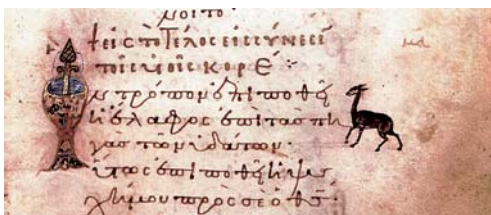 νοιτο
εἰς τὸ τέλος εἰς σύνεσι
τοῖς υἱοῖς κορέ
μα
ν τρόπον ἐπιποθῆ
ἡ ἔλαφος ἐπὶ τὰς πη
γὰς τῶν ὑδάτων·
οὕτως ἐπιποθῆ ἡ ψυ
χή μου πρὸς σὲ ὁ θς·